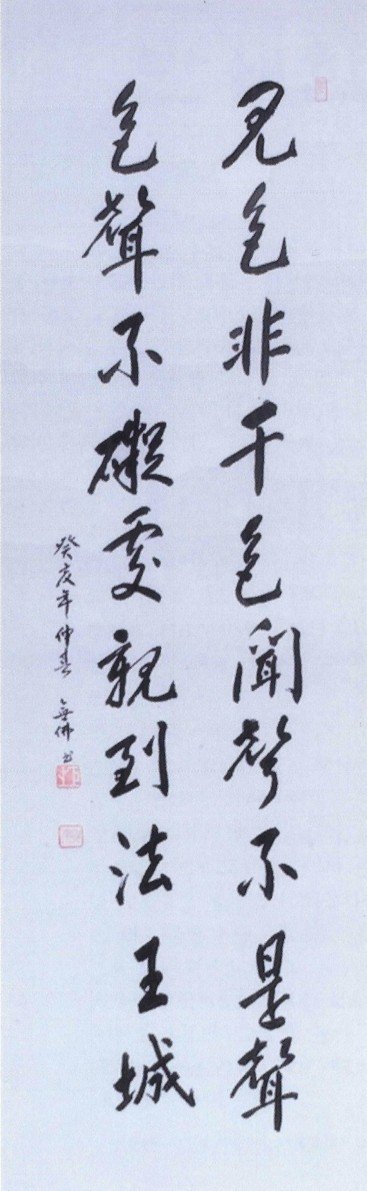 見色非干色聞聲不是聲
色聲不礙處親到法王城
癸亥年仲春 無佛书